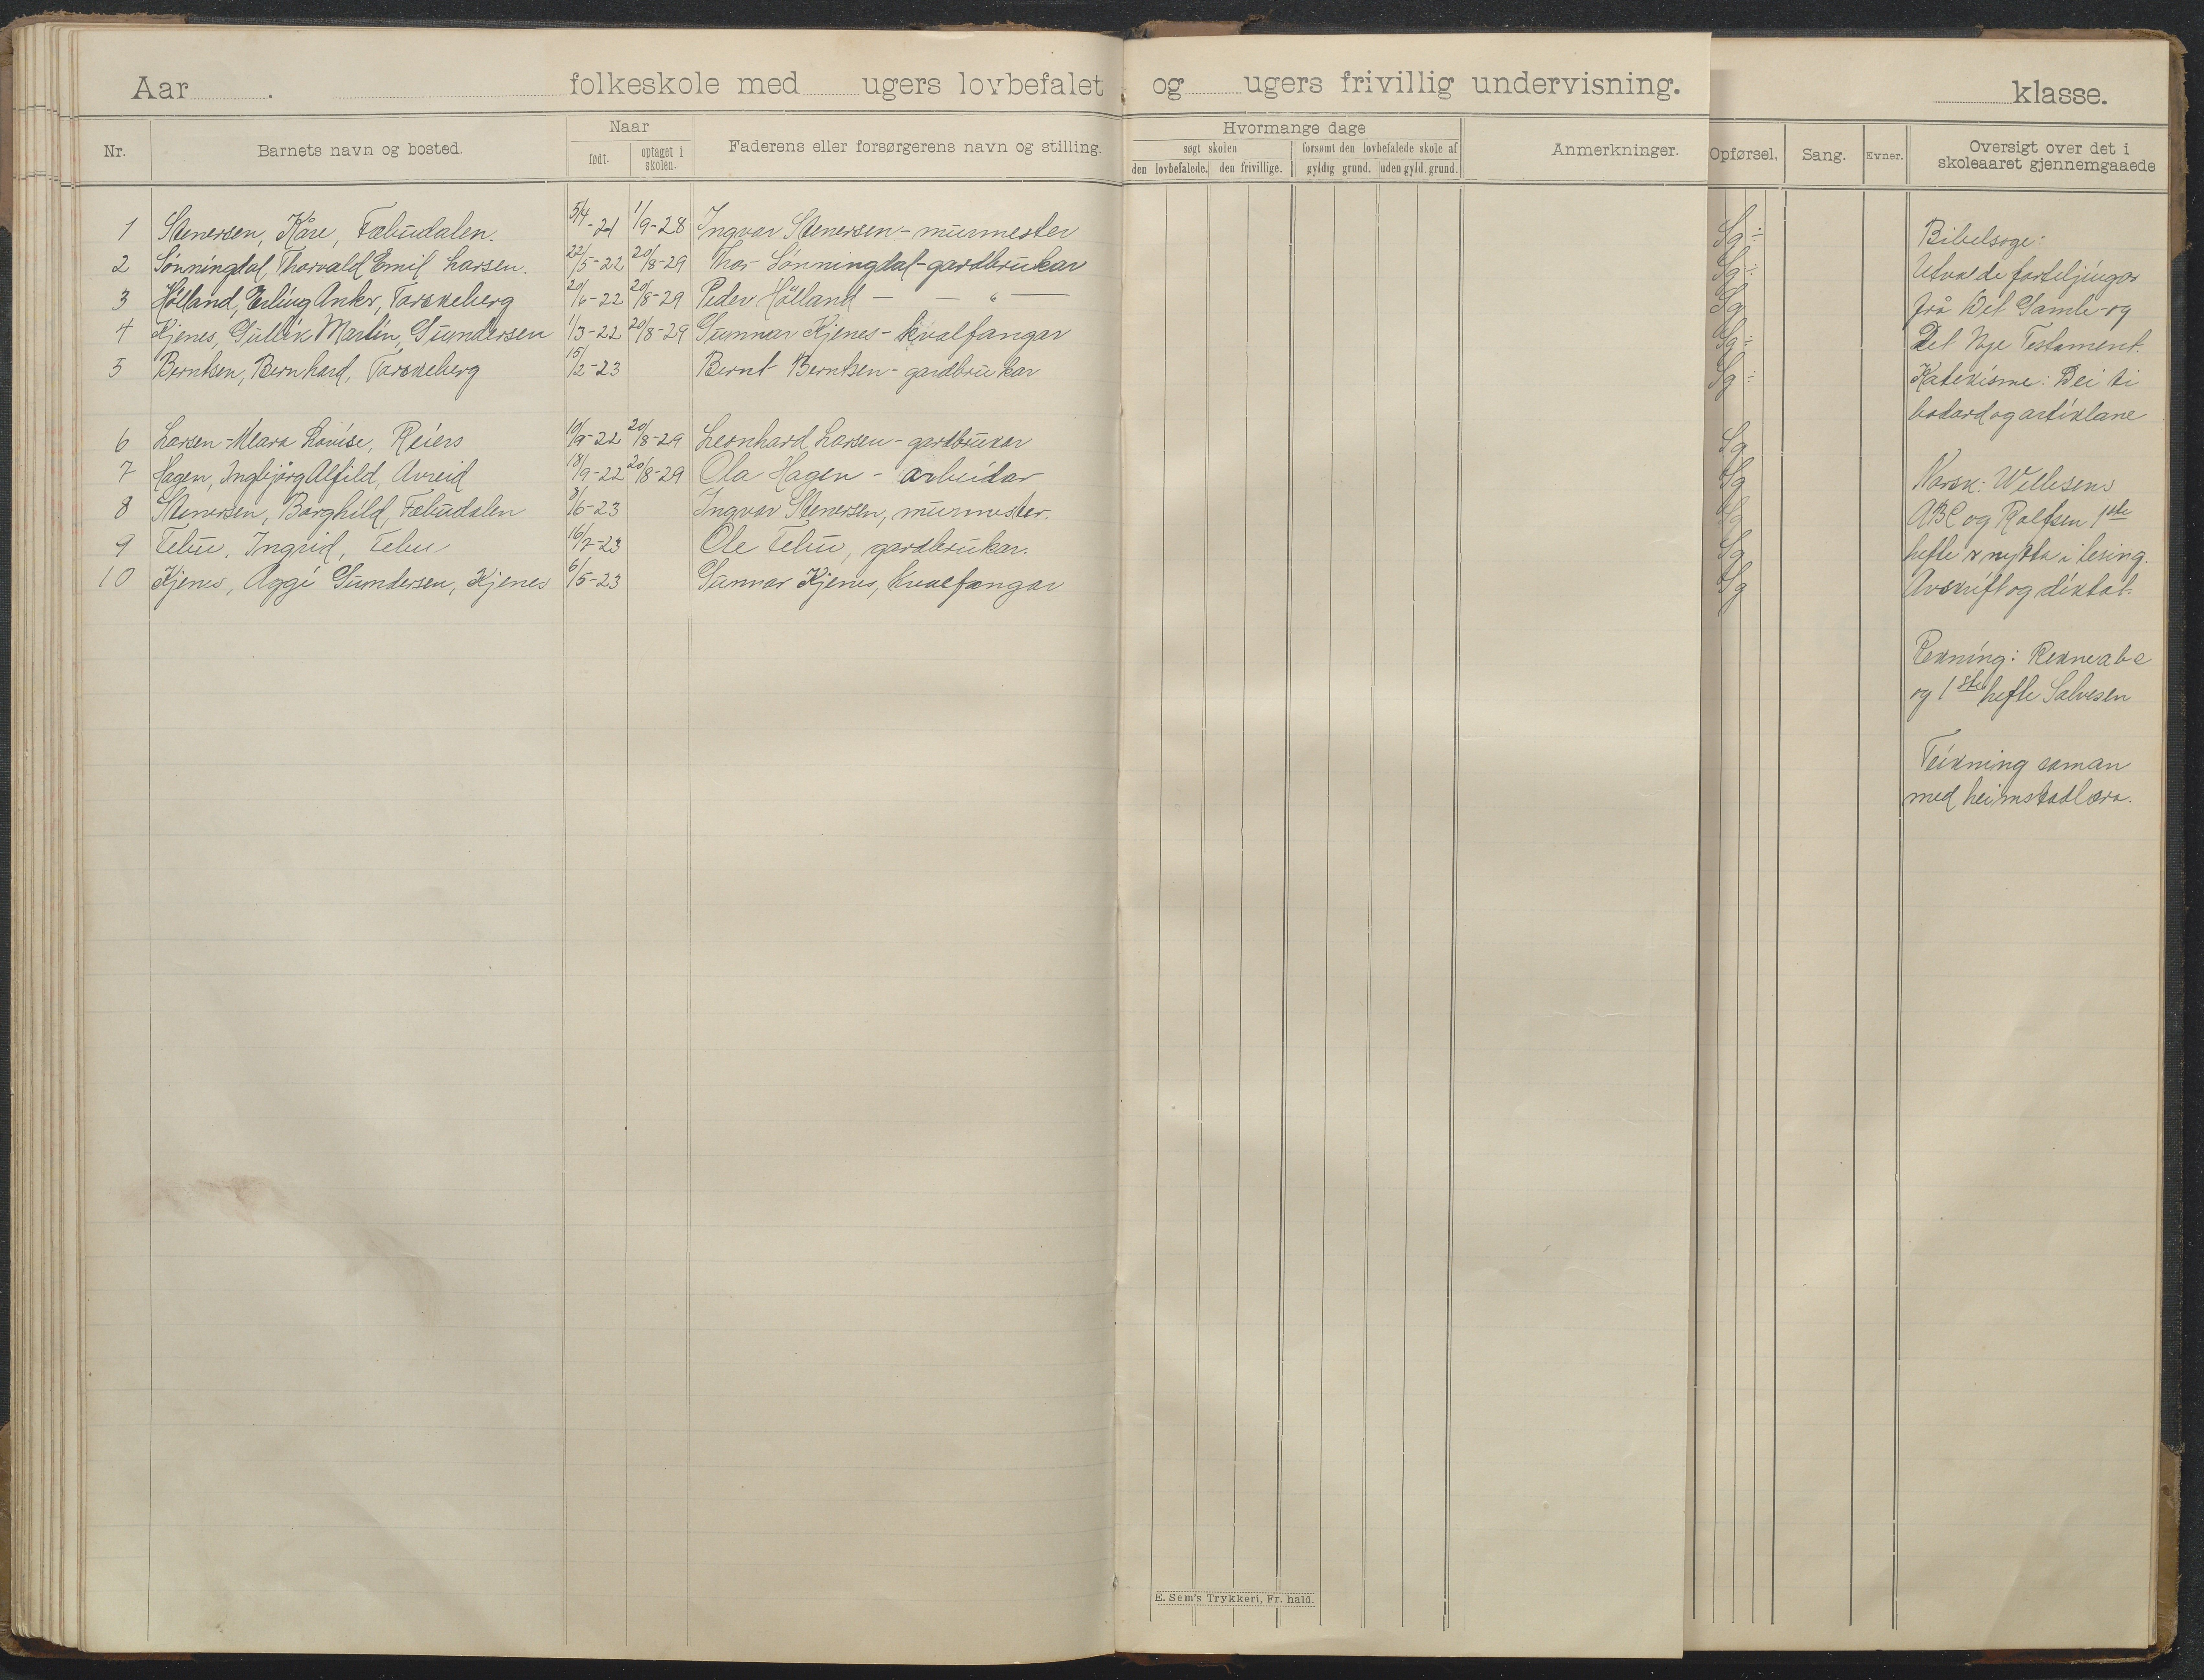 Aar . folkeskole med ugers lovbefalet og ugers frivillig undervisning. klasse.
Nr. Barnets navn og bosted. Naar født. optaget i skolen. Faderens eller forsørgerens navn og stilling. Hvormange dage søgt skolen den lovbefalede. den frivillige. forsømt den lovbefalede skole af gyldig grund. uden gyld. grund. Anmerkninger. Opførsel. Sang. Evner. Oversigt over det i skoleaaret gjennemgaaede
1 Stenersen, Kåre, Fæbudalen. 5/4-21 1/9-28 Ingvar Stenersen - murmester Sg ÷
2 Sønningdal, Thorvald Emil Larsen. 22/5-22 20/8-29 Thor Sønningdal - gardbrukar Sg ÷
3 Hølland, Erling Anker, Torskeberg 20/6-22 20/8-29 Peder Hølland — — " — Sg
4 Kjenes, Gullik Martin, Gundersen 1/3-22 20/8-29 Gunnar Kjenes - kvalfangar Sg ÷
5 Berntsen, Bernhard, Torskeberg 15/2-23 Bernt Berntsen - gardbrukar Sg ÷
6 Larsen - Mara Lovise, Reiers 10/9-22 20/8-29 Leonhard Larsen - gardbrukar Sg
7 Hagen, Ingbjørg Alfild, Avreid 18/9-22 20/8-29 Ola Hagen - arbeidar Sg
8 Stenersen, Borghild, Fæbudalen 8/6-23 Ingvar Stenersen, murmester. Sg
9 Tebu, Ingrid, Tebu 16/7-23 Ole Tebu, gardbrukar. Sg
10 Kjenes, Aggi Gundersen, Kjenes 6/5-23 Gunnar Kjenes, kvalfangar Sg
Bibelsoge:
Utvalde forteljingar
frå Det Gamle og
Det Nye Testament.
Katekisme: Dei ti
bodord og artiklane
Norsk: Willesens
ABC og Rolfsen 1ste
hefte er nytta i lesing.
Avskrift og diktat.
Rekning: Rekneabc
og 1ste hefte Salvesen
Teikning saman
med heimstadlæra.
E. Sem's Trykkeri, Fr. hald.